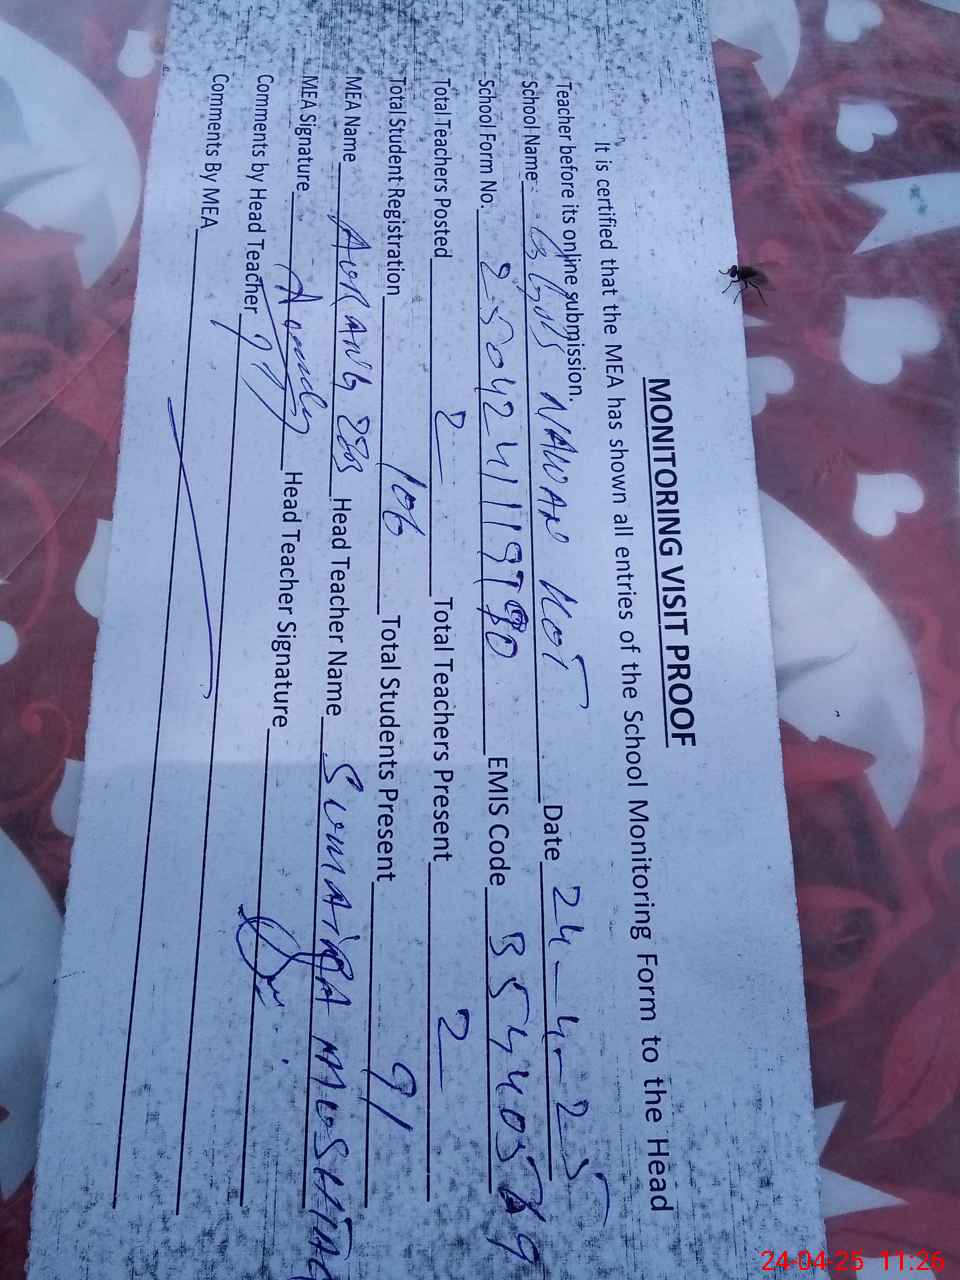 MONITORING VISIT PROOF
It is certified that the MEA has shown all entries of the School Monitoring Form to the Head
Teacher before its online submission.
School Name: NAWAN KOT Date 24-4-25
School Form No. EMIS Code
Total Teachers Posted 2 Total Teachers Present 2
Total Student Registration 106 Total Students Present 91
MEA Name AURANG Head Teacher Name SUMAIRA MUSHTAQ
MEA Signature Head Teacher Signature
Comments by Head Teacher
Comments By MEA
24-04-25 11:26